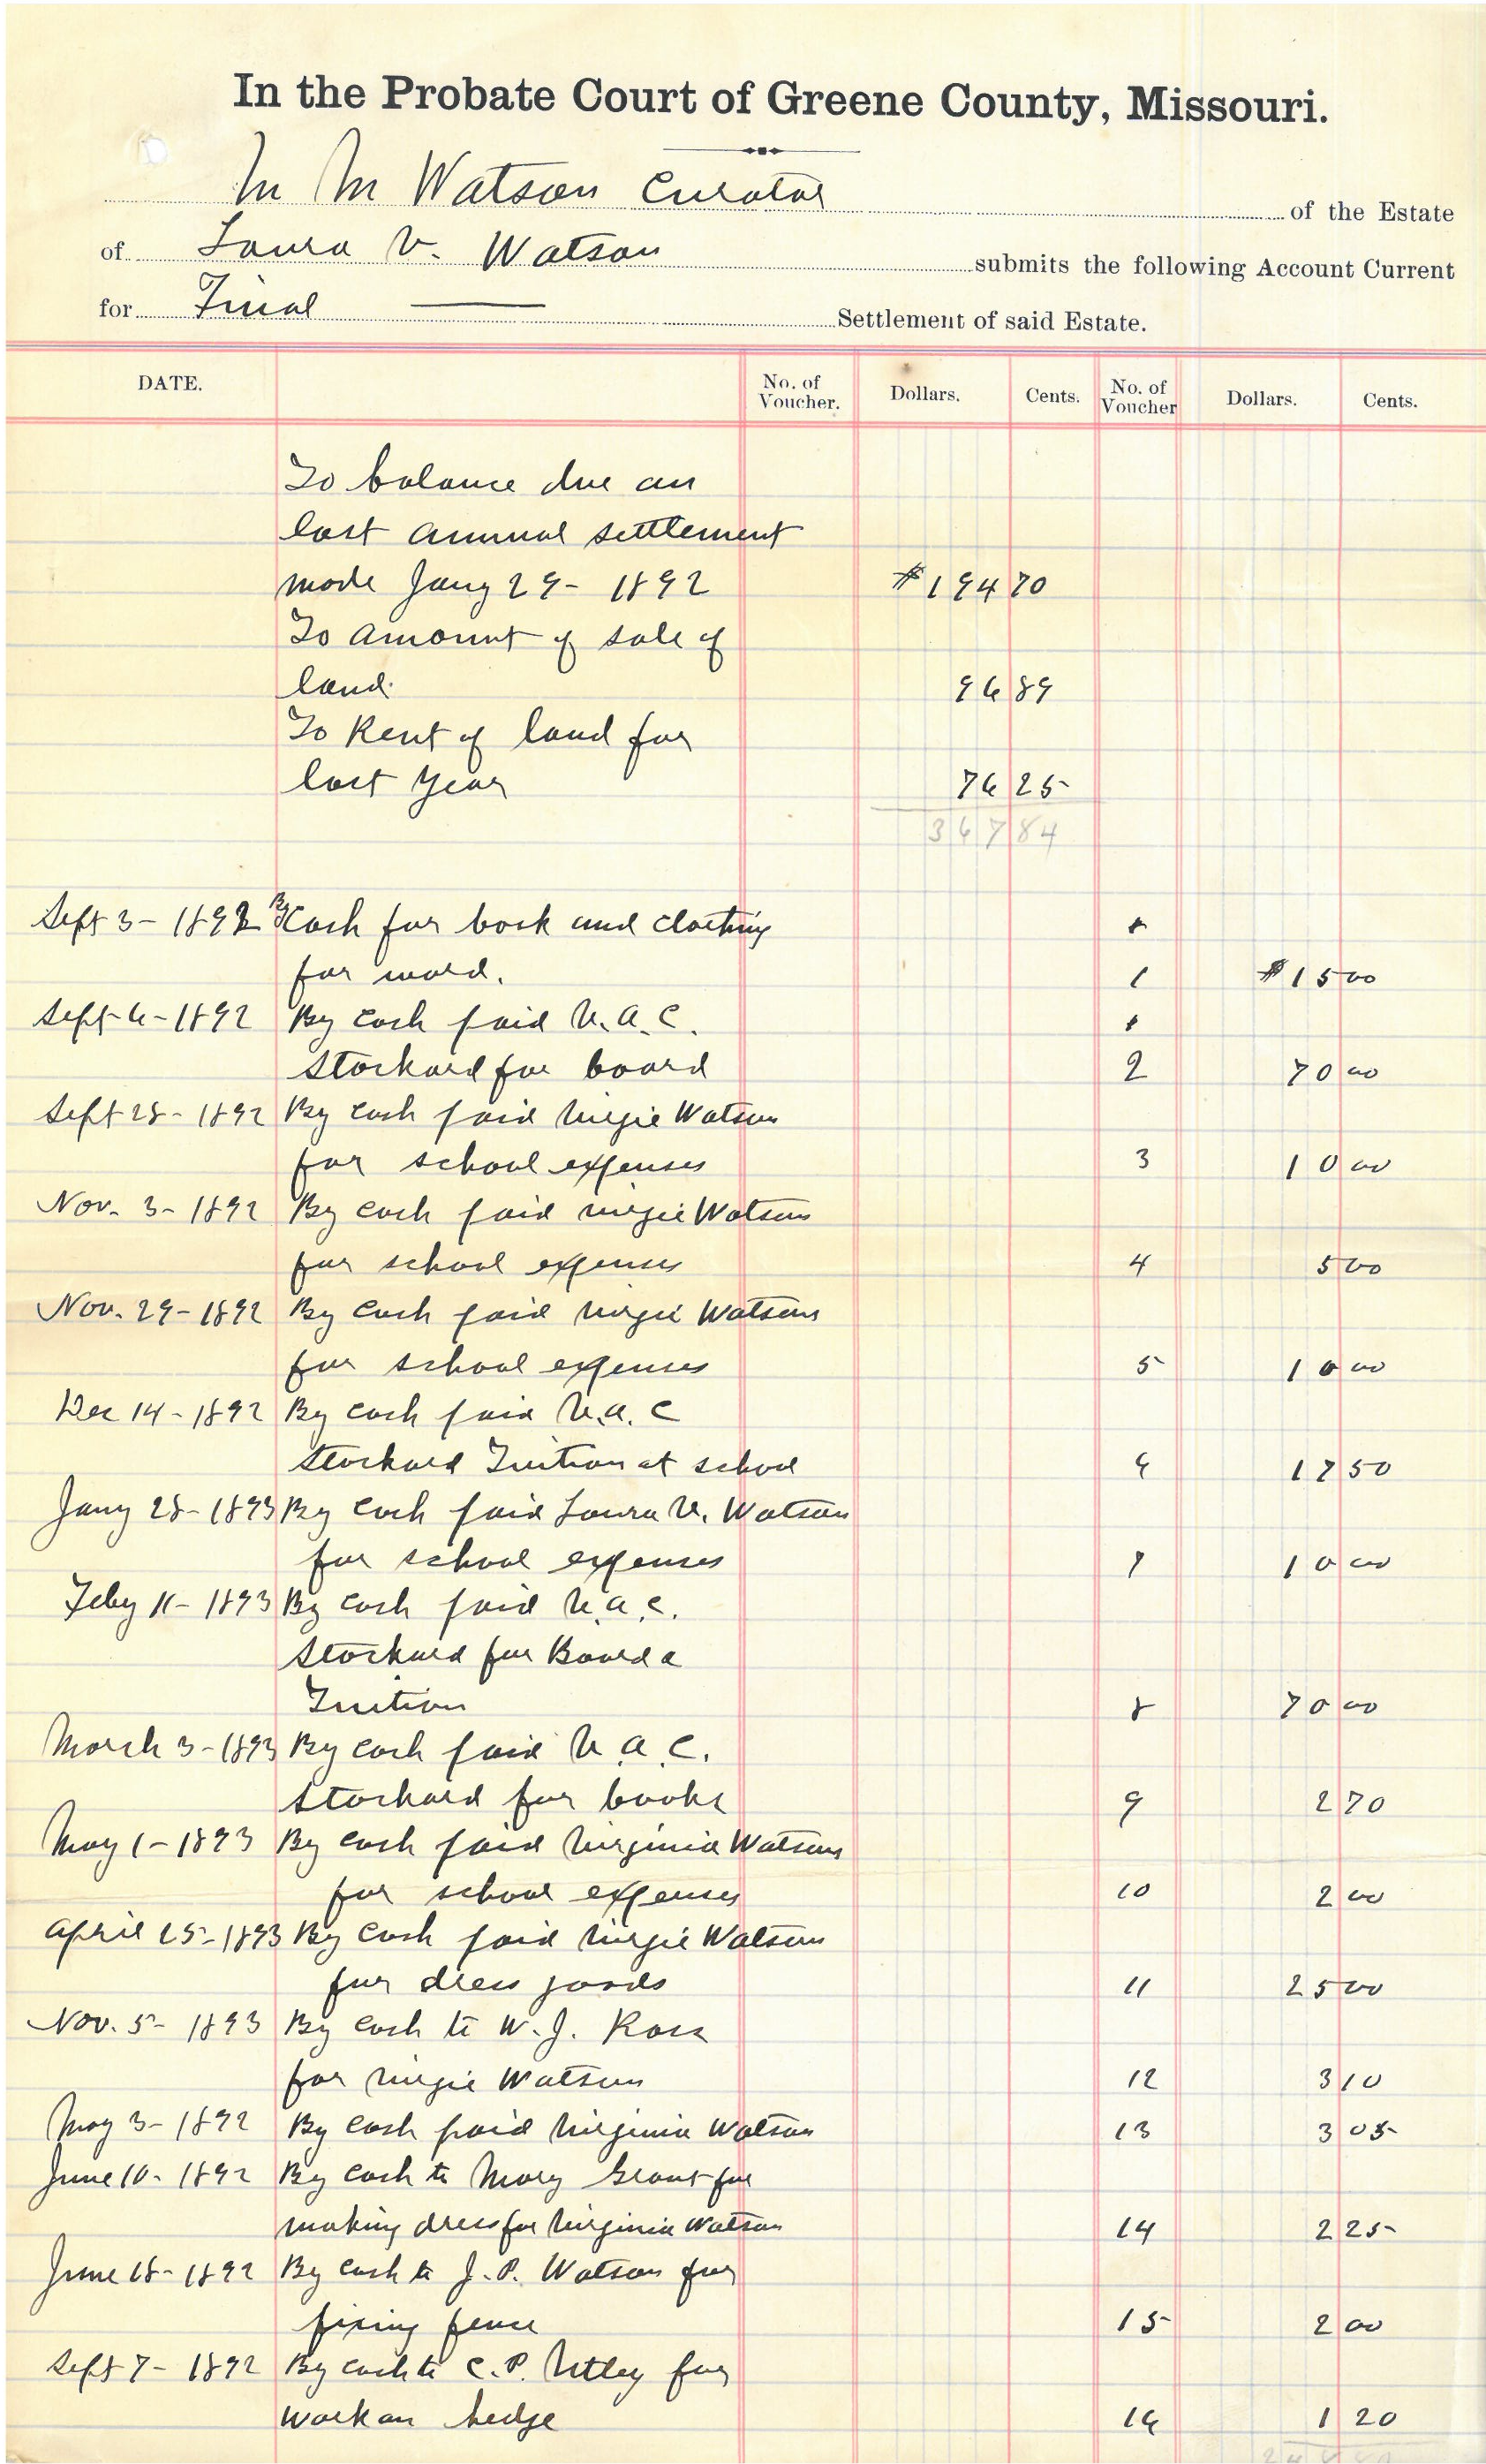 In the Probate Court of Greene County, Missouri.
M M Watson Curator of the Estate
of Laura V. Watson submits the following Account Current
for Final Settlement of said Estate.
DATE. No. of Voucher. Dollars. Cents. No. of Voucher Dollars. Cents.
To balance due on
last annual settlement
made Jany 29- 1892 $194 70
To amount of sale of
land. 96 89
To Rent of land for
last year 76 25
367 84
Sept 3- 1892 By Cash for book and clothing
for ward. 1 $15 00
Sept 6- 1892 By cash paid V. A. C.
Stockard for board 2 70 00
Sept 28- 1892 By cash paid Virgie Watson
for school expenses 3 10 00
Nov. 3- 1892 By cash paid Virgie Watson
for school expenses 4 5 00
Nov. 29- 1892 By cash paid Virgie Watson
for school expenses 5 10 00
Dec 14- 1892 By cash paid V. A. C
Stockard Tuition at school 6 17 50
Jany 28- 1893 By cash paid Laura V. Watson
for school expenses 7 10 00
Feby 11- 1893 By cash paid V. A. C.
Stockard for Board &
Tuition 8 70 00
March 3- 1893 By cash paid V. A. C.
Stockard for books 9 2 70
May 1- 1893 By cash paid Virginia Watson
for school expenses 10 2 00
April 25- 1893 By cash paid Virgie Watson
for dress goods 11 25 00
Nov. 5- 1893 By cash to W. J. Ross
for Virgie Watson 12 3 10
May 3- 1892 By cash paid Virginia Watson 13 3 05
June 10- 1892 By cash to Mary Grant for
making dress for Virginia Watson 14 2 25
June 18- 1892 By cash to J. P. Watson for
fixing fence 15 2 00
Sept 7- 1892 By cash to C. P. Utley for
work on hedge 16 1 20